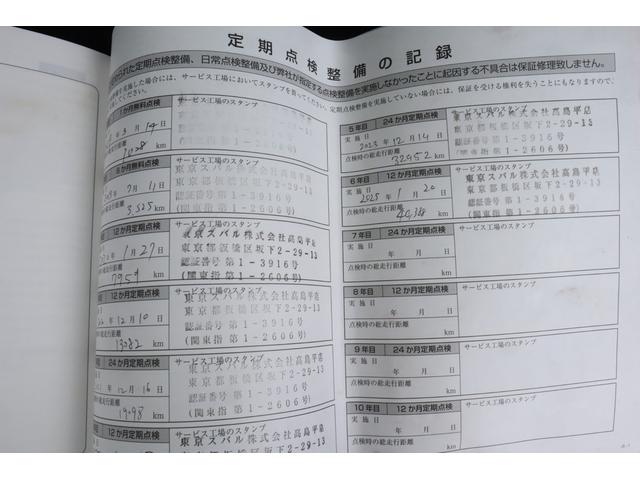 定期点検整備の記録
られた定期点検整備、日常点検整備及び弊社が指定する点検整備を実施しなかったことに起因する不具合は保証修理致しません。
を実施した場合には、サービス工場においてスタンプを押ってください。定期点検整備を実施していない場合には、保証を受ける権利を失うこともありますので、
か月無料点検 サービス工場のスタンプ
3月14日
km
6か月無料点検 サービス工場のスタンプ
東京スバル株式会社高島平店
東京都板橋区坂下2-29-13
認証番号 第1-3916号
(関東指 第1-2606号)
7月11日
3,525 km
12か月定期点検 サービス工場のスタンプ
東京スバル株式会社高島平店
東京都板橋区坂下2-29-13
認証番号 第1-3916号
(関東指 第1-2606号)
1月27日
7959 km
12か月定期点検 サービス工場のスタンプ
東京スバル株式会社高島平店
東京都板橋区坂下2-29-13
認証番号 第1-3916号
(関東指 第1-2606号)
12月10日
13282 km
24か月定期点検 サービス工場のスタンプ
東京スバル株式会社高島平店
東京都板橋区坂下2-29-13
認証番号 第1-3916号
(関東指 第1-2606号)
12月16日
km
12か月定期点検 サービス工場のスタンプ
東京スバル株式会社高島平店
東京都板橋区坂下2-29-13
5年目 24か月定期点検 サービス工場のスタンプ
東京スバル株式会社高島平店
東京都板橋区坂下2-29-13
認証番号 第1-3916号
(関東指 第1-2606号)
実施日 2023年12月14日
点検時の総走行距離
32952 km
6年目 12か月定期点検 サービス工場のスタンプ
東京スバル株式会社高島平店
東京都板橋区坂下2-29-13
認証番号 第1-3916号
(関東指 第1-2606号)
実施日 2025年1月20日
点検時の総走行距離
km
7年目 24か月定期点検 サービス工場のスタンプ
実施日 年 月 日
点検時の総走行距離
km
8年目 12か月定期点検 サービス工場のスタンプ
実施日 年 月 日
点検時の総走行距離
km
9年目 24か月定期点検 サービス工場のスタンプ
実施日 年 月 日
点検時の総走行距離
km
10年目 12か月定期点検 サービス工場のスタンプ
実施日 年 月 日